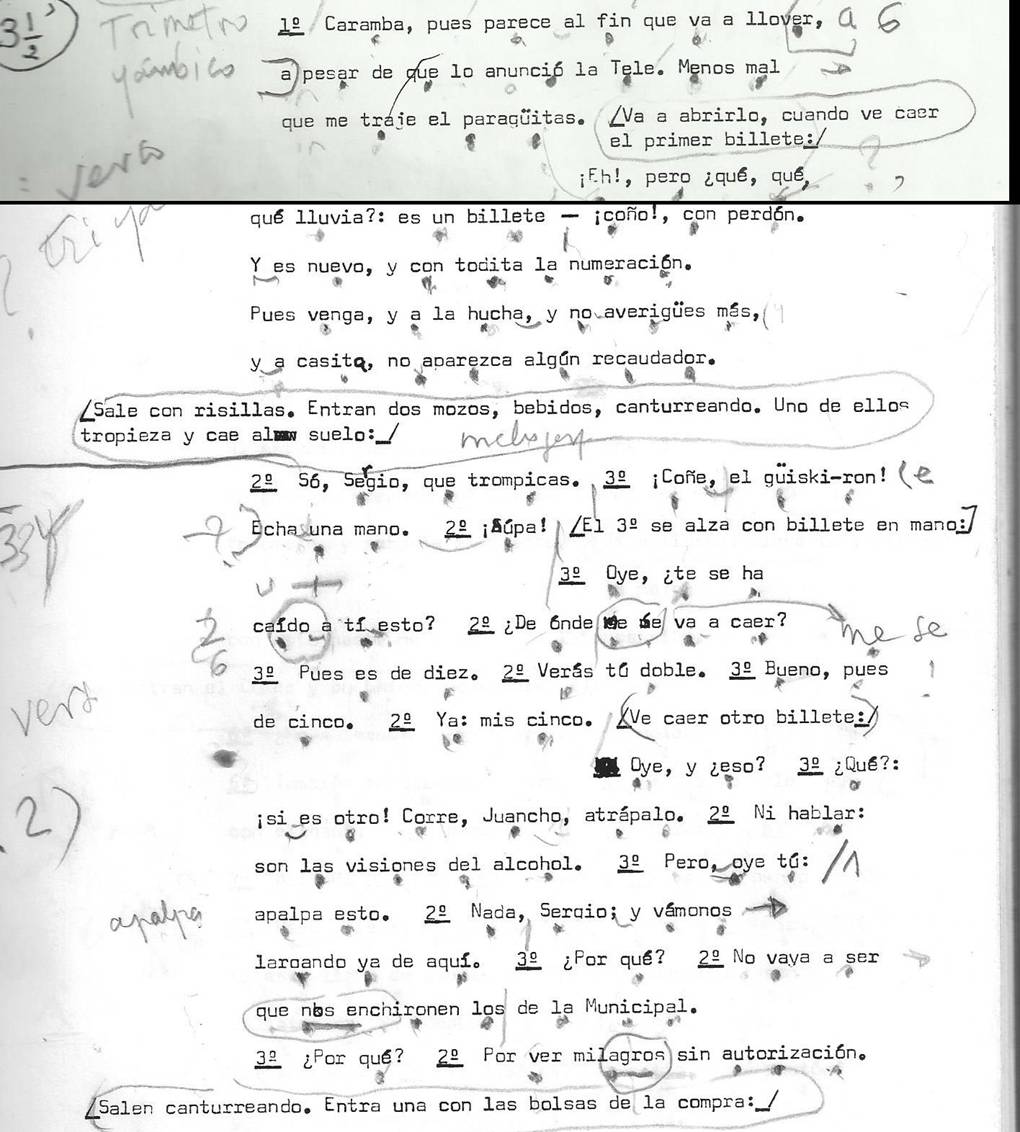 3 1/2) Trímetro 1º Caramba, pues parece al fin que va a llover, a 6
yámbico a pesar de que lo anunció la Tele. Menos mal
que me traje el paragüitas. /Va a abrirlo, cuando ve caer
el primer billete:/
¡Eh!, pero ¿qué, qué, ?
qué lluvia?: es un billete — ¡coño!, con perdón.
Y es nuevo, y con todita la numeración.
Pues venga, y a la hucha, y no averigües más,
y a casita, no aparezca algún recaudador.
/Sale con risillas. Entran dos mozos, bebidos, canturreando. Uno de ellos
tropieza y cae al suelo:_/
2º Só, Sergio, que trompicas. 3º ¡Coñe, el güiski-ron! (e
Echa una mano. 2º ¡Aúpa! /El 3º se alza con billete en mano:/
3º Oye, ¿te se ha
caído a tí esto? 2º ¿De ónde me se va a caer? me se
3º Pues es de diez. 2º Verás tú doble. 3º Bueno, pues
de cinco. 2º Ya: mis cinco. /Ve caer otro billete:/
Oye, y ¿eso? 3º ¿Qué?:
2) ¡si es otro! Corre, Juancho, atrápalo. 2º Ni hablar:
son las visiones del alcohol. 3º Pero, oye tú:
apalpa apalpa esto. 2º Nada, Sergio; y vámonos
largando ya de aquí. 3º ¿Por qué? 2º No vaya a ser
que nos enchironen los de la Municipal.
3º ¿Por qué? 2º Por ver milagros sin autorización.
/Salen canturreando. Entra una con las bolsas de la compra:_/